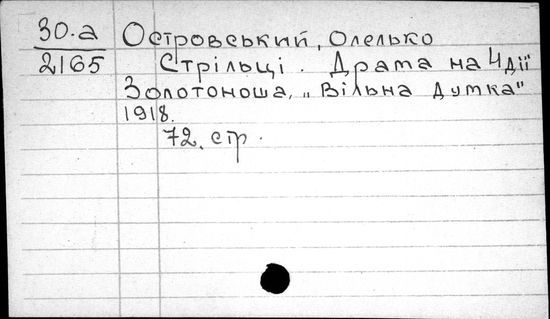 30.а
2165
Островський, Олелько
Стрільці. Драма на 4 дії
Золотоноша, „Вільна Думка"
1918.
72. стр.